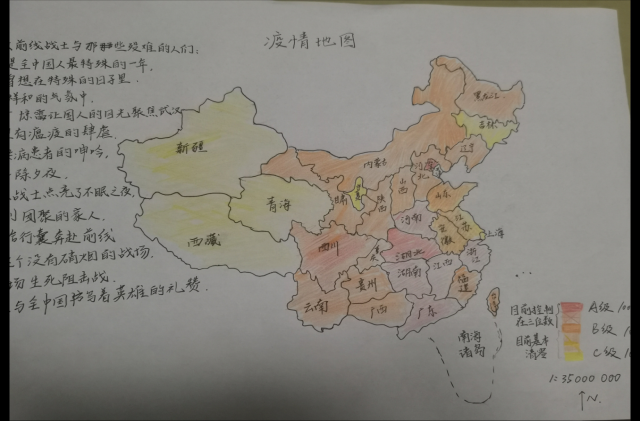 疫情地图
前线战士与那些罹难的人们:
是全中国人最特殊的一年,
想在特殊的日子里.
祥和的气氛中.
惊雷让国人的目光聚焦武汉
有瘟疫的肆虐.
病患者的呻吟,
除夕夜.
战士点亮了不眠之夜,
团聚的家人.
行囊奔赴前线
个没有硝烟的战场.
场生死阻击战.
与全中国书写着英雄的礼赞.
黑龙江
吉林
辽宁
新疆
内蒙古
河北
山西
山东
甘肃
陕西
青海
河南
江苏
安徽
上海
西藏
四川
湖北
浙江
湖南
江西
贵州
福建
云南
广西
广东
台湾
南海
诸岛
...
目前控制
在三位数
目前基本
清零
A级
B级
C级
1:35000 000
↑N.